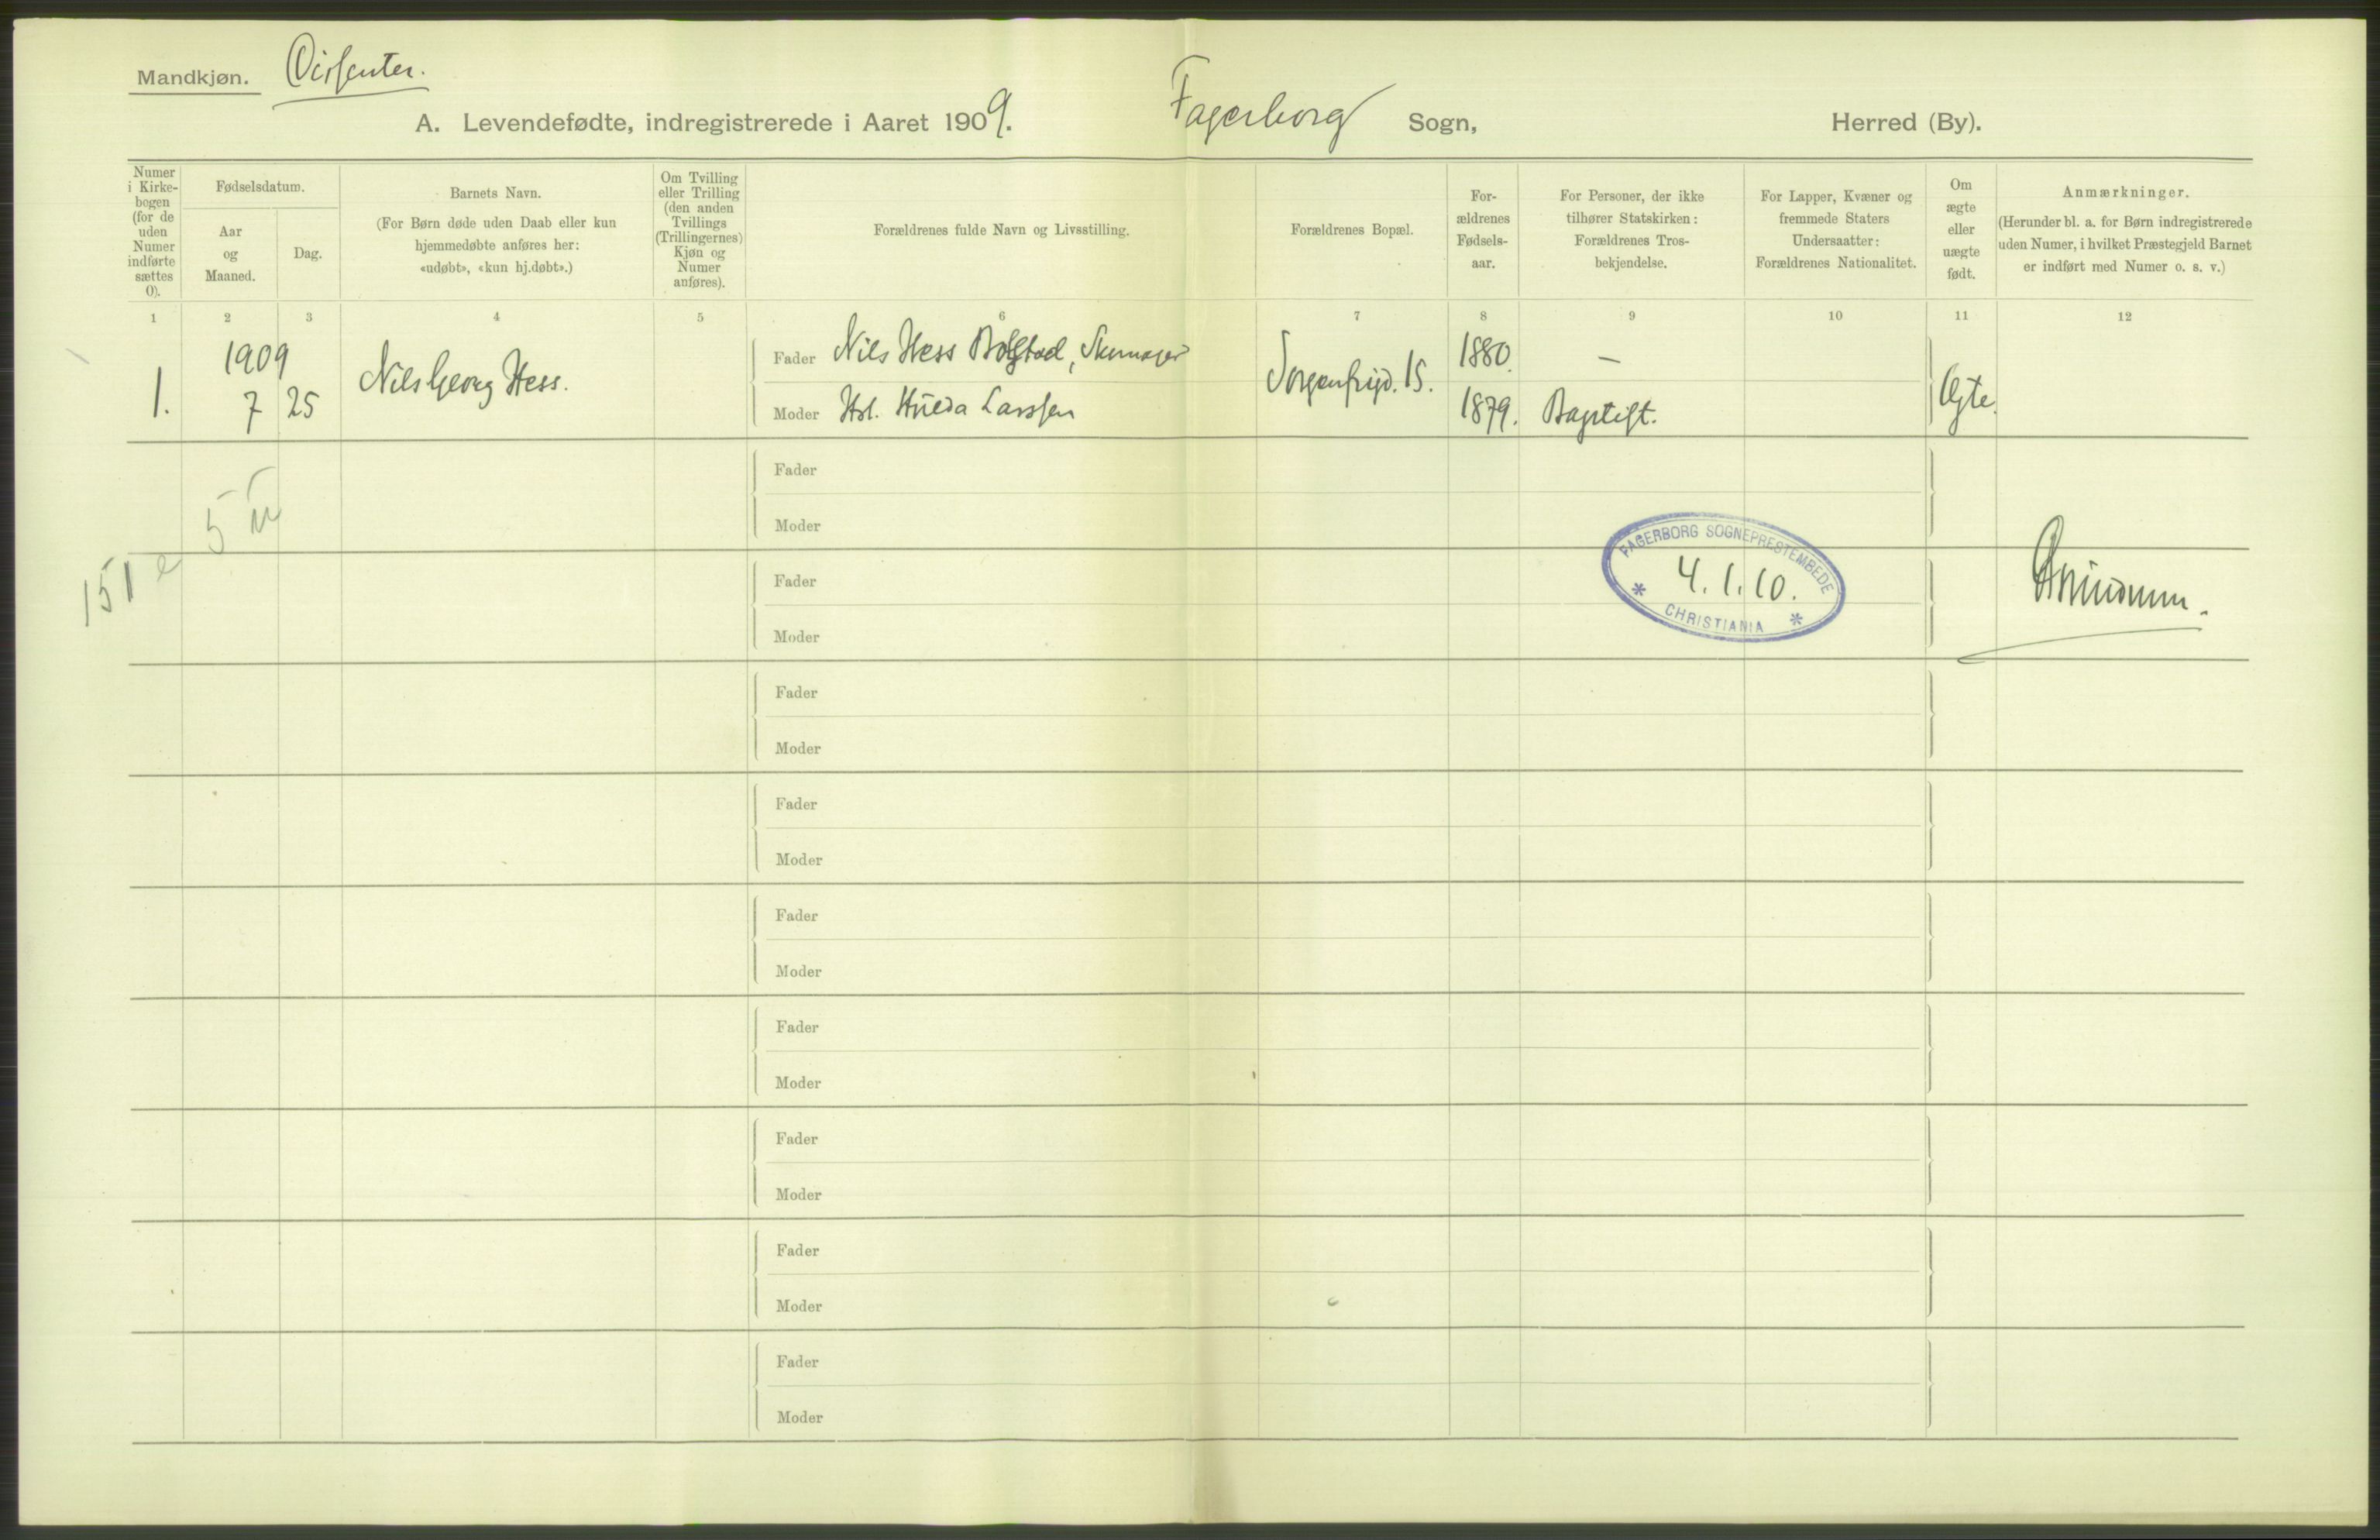 Mandkjøn. Disenter.
A. Levendefødte, indregistrerede i Aaret 1909. Fagerborg Sogn, Herred (By).
Numer i Kirkebogen (for de uden Numer indførte sættes 0).
Fødselsdatum.
Aar og Maaned.
Dag.
Barnets Navn.
(For Børn døde uden Daab eller kun
hjemmedøbte anføres her:
«udøbt», «kun hj.døbt».)
Om Tvilling
eller Trilling
(den anden
Tvillings
(Trillingernes)
Kjøn og
Numer
anføres).
Forældrenes fulde Navn og Livsstilling.
Forældrenes Bopæl.
For-
ældrenes
Fødsels-
aar.
For Personer, der ikke
tilhører Statskirken:
Forældrenes Tros-
bekjendelse.
For Lapper, Kvæner og
fremmede Staters
Undersaatter:
Forældrenes Nationalitet.
Om
ægte
eller
uægte
født.
Anmærkninger.
(Herunder bl. a. for Børn indregistrerede
uden Numer, i hvilket Præstegjeld Barnet
er indført med Numer o. s. v.)
1 2 3 4 5 6 7 8 9 10 11 12
1. 1909 7 25 Nils Georg Hess.
Fader Nils Hess Bolstad, Skomager 1880. —
Moder Hst. Hilda Larssen 1879. Baptist.
Sorgenfrigd. 15. Ægte.
Fader
Moder
5
151 e
Fader
Moder
FAGERBORG SOGNEPRESTEMBEDE
4.1.10.
* CHRISTIANIA *
Fader
Moder
Fader
Moder
Fader
Moder
Fader
Moder
Fader
Moder
Fader
Moder
Fader
Moder